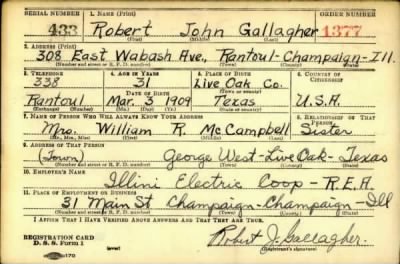 SERIAL NUMBER 1. NAME (Print) ORDER NUMBER
433 Robert John Gallagher 1377
(First) (Middle) (Last)
2. ADDRESS (Print)
308 East Wabash Ave., Rantoul-Champaign-Ill.
(Number and street or R. F. D. number) (Town) (County) (State)
3. TELEPHONE 4. AGE IN YEARS 5. PLACE OF BIRTH 6. COUNTRY OF CITIZENSHIP
338 31 Live Oak Co.
DATE OF BIRTH (Town or county)
Rantoul Mar. 3 1909 Texas U.S.A.
(Exchange) (Number) (Mo.) (Day) (Yr.) (State or country)
7. NAME OF PERSON WHO WILL ALWAYS KNOW YOUR ADDRESS 8. RELATIONSHIP OF THAT PERSON
Mrs. William R. McCampbell Sister
(Mr., Mrs., Miss) (First) (Middle) (Last)
9. ADDRESS OF THAT PERSON
(Town) George West-Live Oak-Texas
(Number and street or R. F. D. number) (Town) (County) (State)
10. EMPLOYER'S NAME
Illini Electric Coop-R.E.A.
11. PLACE OF EMPLOYMENT OR BUSINESS
31 Main St Champaign-Champaign-Ill
(Number and street or R. F. D. number) (Town) (County) (State)
I AFFIRM THAT I HAVE VERIFIED ABOVE ANSWERS AND THAT THEY ARE TRUE.
REGISTRATION CARD
D. S. S. Form 1 (over) Robert J. Gallagher.
(Registrant's signature)